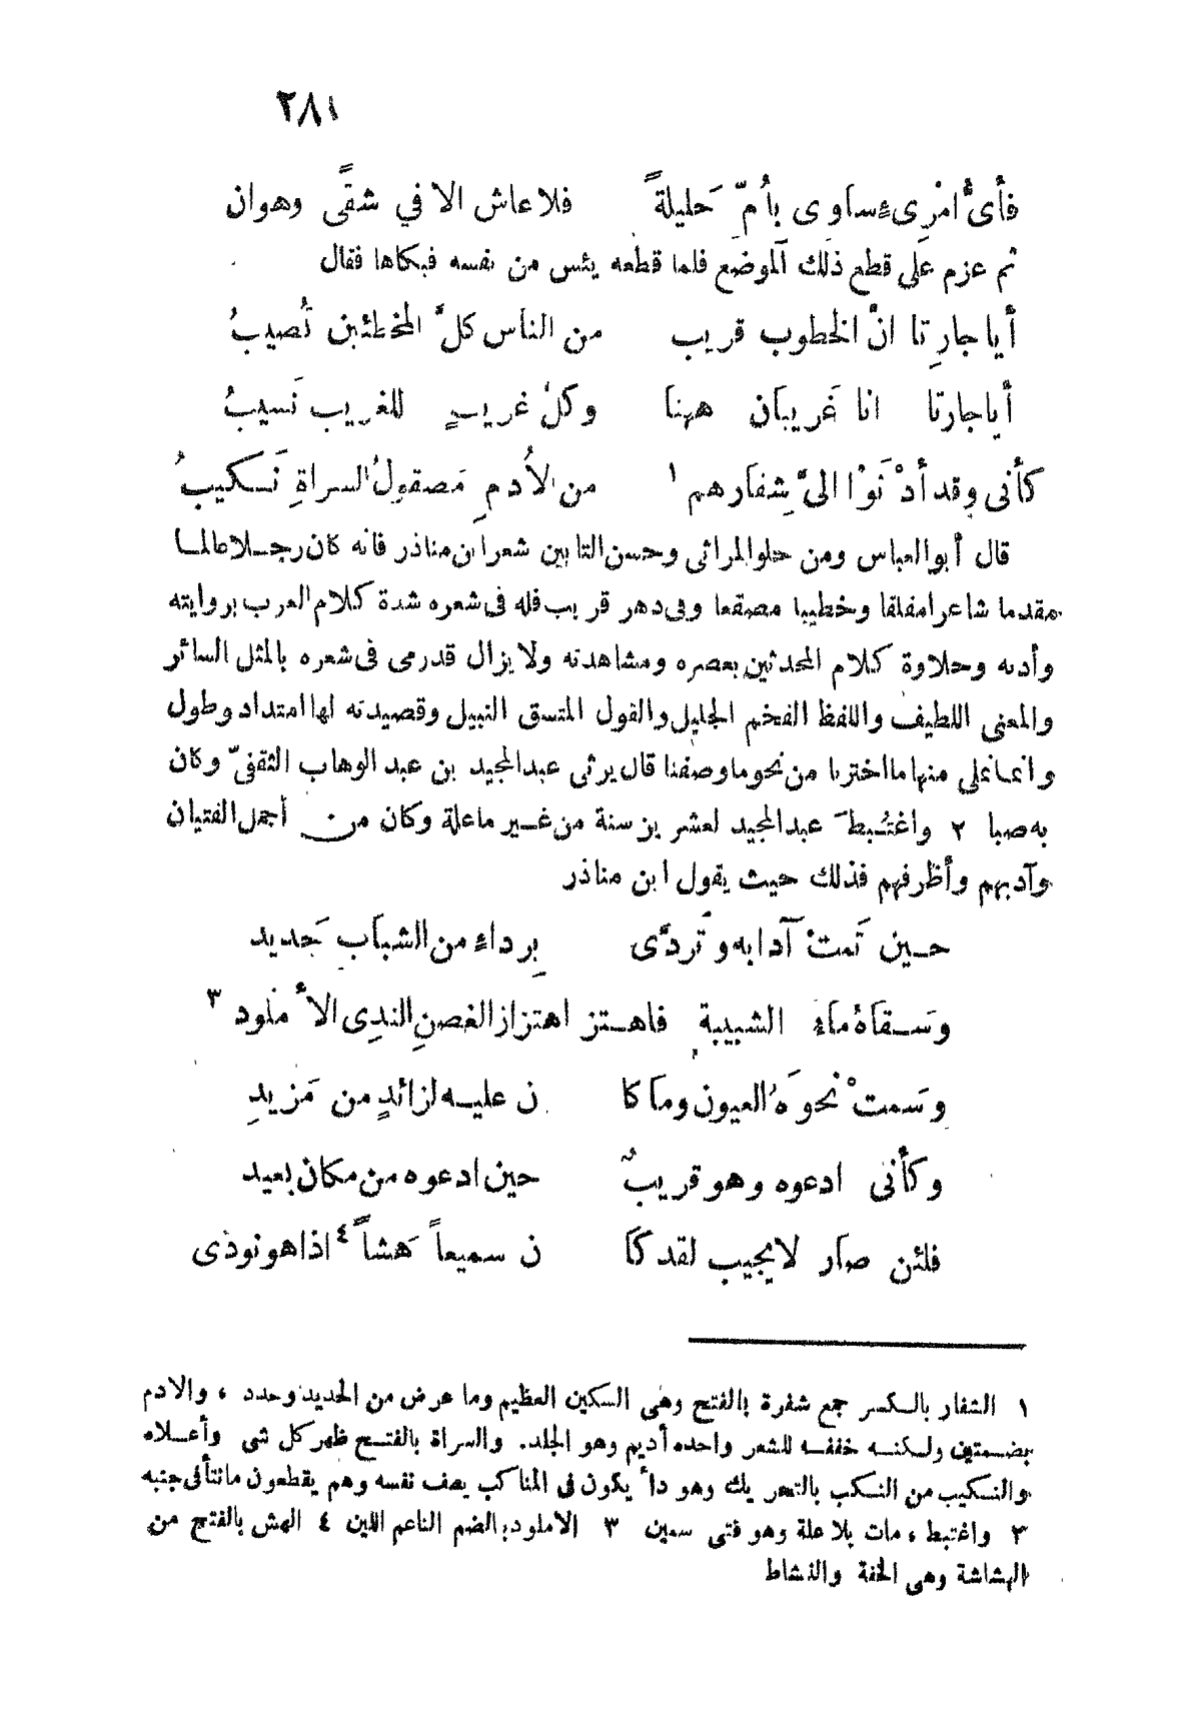 ٢٨١
فأىُّ امْرِىءٍ ساوى بأُمّ حَليلةً فلا عاش الا في شقًى وهوان
ثم عزم على قطع ذلك الموضع فلما قطعه يئس من نفسه فبكاها فقال
أيا جارِتا انَّ الخطوب قريب من الناس كلَّ المخطئين تُصيبُ
أياجارتا انا غَريبان ههنا وكلُ غريبٍ للغريب نَسيبُ
كأنى وقد أدْنَوْا الىَّ شِفارهم ١ من الأُدمِ مَصقولُ السراةِ نَسكيبُ
قال أبو العباس ومن حلو المراثى وحسن التابين شعر ابن مناذر فانه كان رجلا عالمـا
مقدما شاعرا مفلقا وخطيبا مصقعا وفى دهر قريب فله فى شعره شدة كلام العرب بروايته
وأدبه وحلاوة كلام المحدثين بعصره ومشاهدته ولا يزال قدرمى فى شعره بالمثل السائر
والمعنى اللطيف واللفظ الفخم الجليل والقول المتسق النبيل وقصيدته لها امتداد وطول
وانما نملى منها ما اخترنا من نحو ما وصفنا قال يرثى عبد المجيد بن عبد الوهاب الثقفىّ وكان
به صبا ٢ واغتُبطَ عبد المجيد لعشرين سنة من غير ما علة وكان من أجمل الفتيان
وآدبهم وأظرفهم فذلك حيث يقول ابن مناذر
حين تَمتْ آدابه وتَردَّى بِرداءٍ من الشباب جَديد
وسَقاهُ ماءُ الشبيبة فاهتز اهتزاز الغصنِ الندِى الأُملود ٣
وسَمتْ نحوَهُ العيون وما كا ن عليه لزائدٍ من مَزيدِ
وكأنى ادعوه وهو قريبٌ حين ادعوه من مكان بعيد
فلئن صار لا يجيب لقد كا ن سميعاً هَشاً ٤ اذا هو نودى
١ الشفار بالكسر جمع شفرة بالفتح وهى السكين العظيم وما عرض من الحديد وحدد ، والادم
بضمتين ولكنه خففه للشعر واحده أديم وهو الجلد. والسراة بالفتح ظهر كل شى وأعلاه
والنكيب من النكب بالتحريك وهو دأ يكون فى المناكب يصف نفسه وهم يقطعون مانتأ فى جنبه
٢ واغتبط ، مات بلا علة وهو فتى سمين ٣ الاملود بالضم الناعم اللين ٤ الهش بالفتح من
الهشاشة وهى الخفة والنشاط